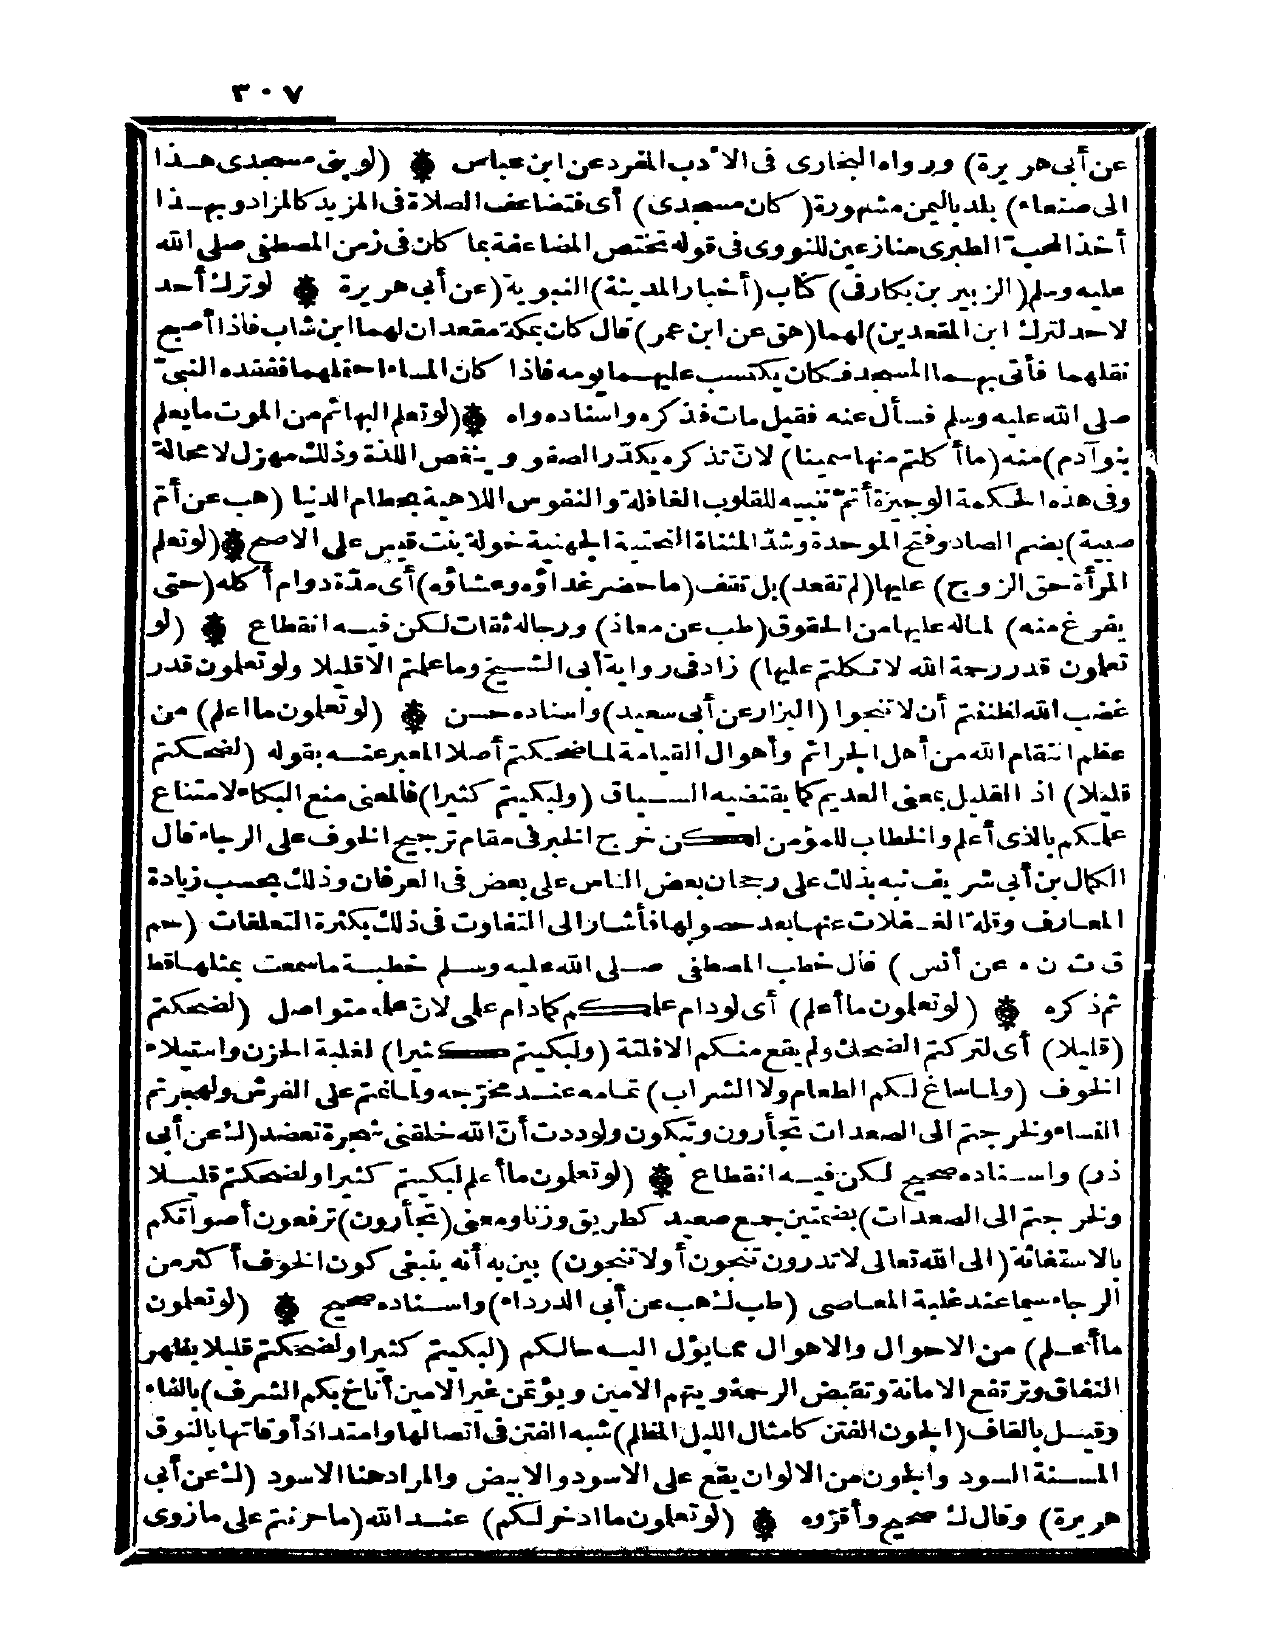 ٣٠٧
عن أبى هريرة) ورواه البخارى فى الادب المفرد عن ابن عباس (لو بنى مسجدى هـذا
الى صنعاء) بلد باليمن مشهورة (كان مسجدى) أى فتضاعف الصلاة فى المزيد كالمزاد وبهـذا
أخذ المحب الطبرى منازعين للنووى فى قوله تختص المضاعفة بما كان فى زمن المصطفى صلى الله
عليه وسلم (الزبير بن بكار فى) كتاب (أخبار المدينة) النبوية (عن أبى هريرة لو ترك أحد
لاحد لترك ابن المقعدين) لهما (هق عن ابن عمر) قال كان بمكة مقعدان لهما ابن شاب فاذا أصبح
نقلهما فأتى بهـما المسجد فـكان يكتسب عليهـما يومه فاذا كان المساء احتملهما ففقده النبىّ
صلى الله عليه وسلم فسأل عنه فقيل مات فذكره واسناده واه (لو تعلم البهائم من الموت ما يعلم
بنو آدم) منه (ما أكلتم منها سمينا) لانّ تذكره يكدّر الصفو وينغص اللذة وذلك مهزل لا محالة
وفى هذه الحكمة الوجيزة أتمّ تنبيه للقلوب الغافلة والنفوس اللاهية بحطام الدنيا (هب عن أمّ
صبية) بضم الصاد وفتح الموحدة وشدّ المثناة التحتية الجهنية خولة بنت قيس على الاصح (لو تعلم
المرأة حق الزوج) عليها (لم تقعد) بل تقف (ما حضر غداؤه وعشاؤه) أى مدّة دوام أكله (حتى
يفرغ منه) لماله عليها من الحقوق (طب عن معاذ) ورجاله ثقات لكن فيـه انقطاع (لو
تعلمون قدر رحمة الله لاتـكلتم عليها) زاد فى رواية أبى الشـيخ وما عملتم الاقليلا ولو تعلمون قدر
غضب الله لظننتم أن لا تنجوا (البزار عن أبى سعيد) واسناده حسن (لو تعلمون ما اعلم) من
عظم انتقام الله من أهل الجرائم وأهوال القيامة لما ضحكتم أصلا المعبر عنـه بقوله (لضحكتم
قليلا) اذ القليل بمعنى العديم كما يقتضيه السـياق (ولبكيتم كثيرا) فالمعنى منع البكاء لامتناع
علمكم بالذى أعلم والخطاب للمؤمن لـكن خرج الخبر فى مقام ترجيح الخوف على الرجاء قال
الكمال بن أبى شريف نبه بذلك على رجحان بعض الناس على بعض فى العرفان وذلك بحسب زيادة
المعارف وقلة الغـفلات عنها بعد حصولها فأشار الى التفاوت فى ذلك بكثرة التعلقات (حم
ق ت ن ه عن أنس) قال خطب المصطفى صـلى الله عليه وسـلم خطبـة ما سمعت بمثلها قط
ثم ذكره (لو تعلمون ما أعلم) أى لو دام علمـكم كما دام على لانّ علمه متواصل (لضحكتم
(قليلا) أى لتركتم الضحك ولم يقع منـكم الا فلتة (ولبكيتم كـثيرا) لغلبة الحزن واستيلاء
الخوف (ولما ساغ لـكم الطعام ولا الشراب) تمامه عنـد مخرّجه ولما نمتم على الفرش ولهجرتم
النساء ولخرجتم الى الصعدات تجأرون وتبكون ولوددت أنّ الله خلقنى شجرة تعضد (ك عن أبى
ذر) واسـناده صحيح لـكن فيـه انقطاع (لو تعلمون ما أعلم لبكيتم كثيرا ولضحكتم قليـلا
ولخرجتم الى الصعدات) بضمتين جمع صعيد كطريق وزنا ومعنى (تجأرون) ترفعون أصواتكم
بالاستغاثة (الى الله تعالى لا تدرون تنجون أو لا تنجون) بين به أنه ينبغى كون الخوف أكثر من
الرجاء سيما عند غلبة المعاصى (طب ك هب عن أبى الدرداء) واسـناده صحيح (لو تعلمون
ما أعـلم) من الاحوال والاهوال ممـا يؤل اليـه حالكم (لبكيتم كثيرا ولضحكتم قليلا يظهر
النفاق وترتفع الامانة وتقبض الرحمة ويتهم الامين ويؤتمن غير الامين أناخ بكم الشرف) بالفاء
وقيـل بالقاف (الجون الفتن كامثال الليل المظلم) شبه الفتن فى اتصالها وامتداد أوقاتها بالنوق
المسـنة السود والجون من الالوان يقع على الاسود والابيض والمراد هنا الاسود (ك عن أبى
هريرة) وقال ك صحيح وأقرّوه (لو تعلمون ما ادخر لـكم) عنـد الله (ما حزنتم على ما زوى